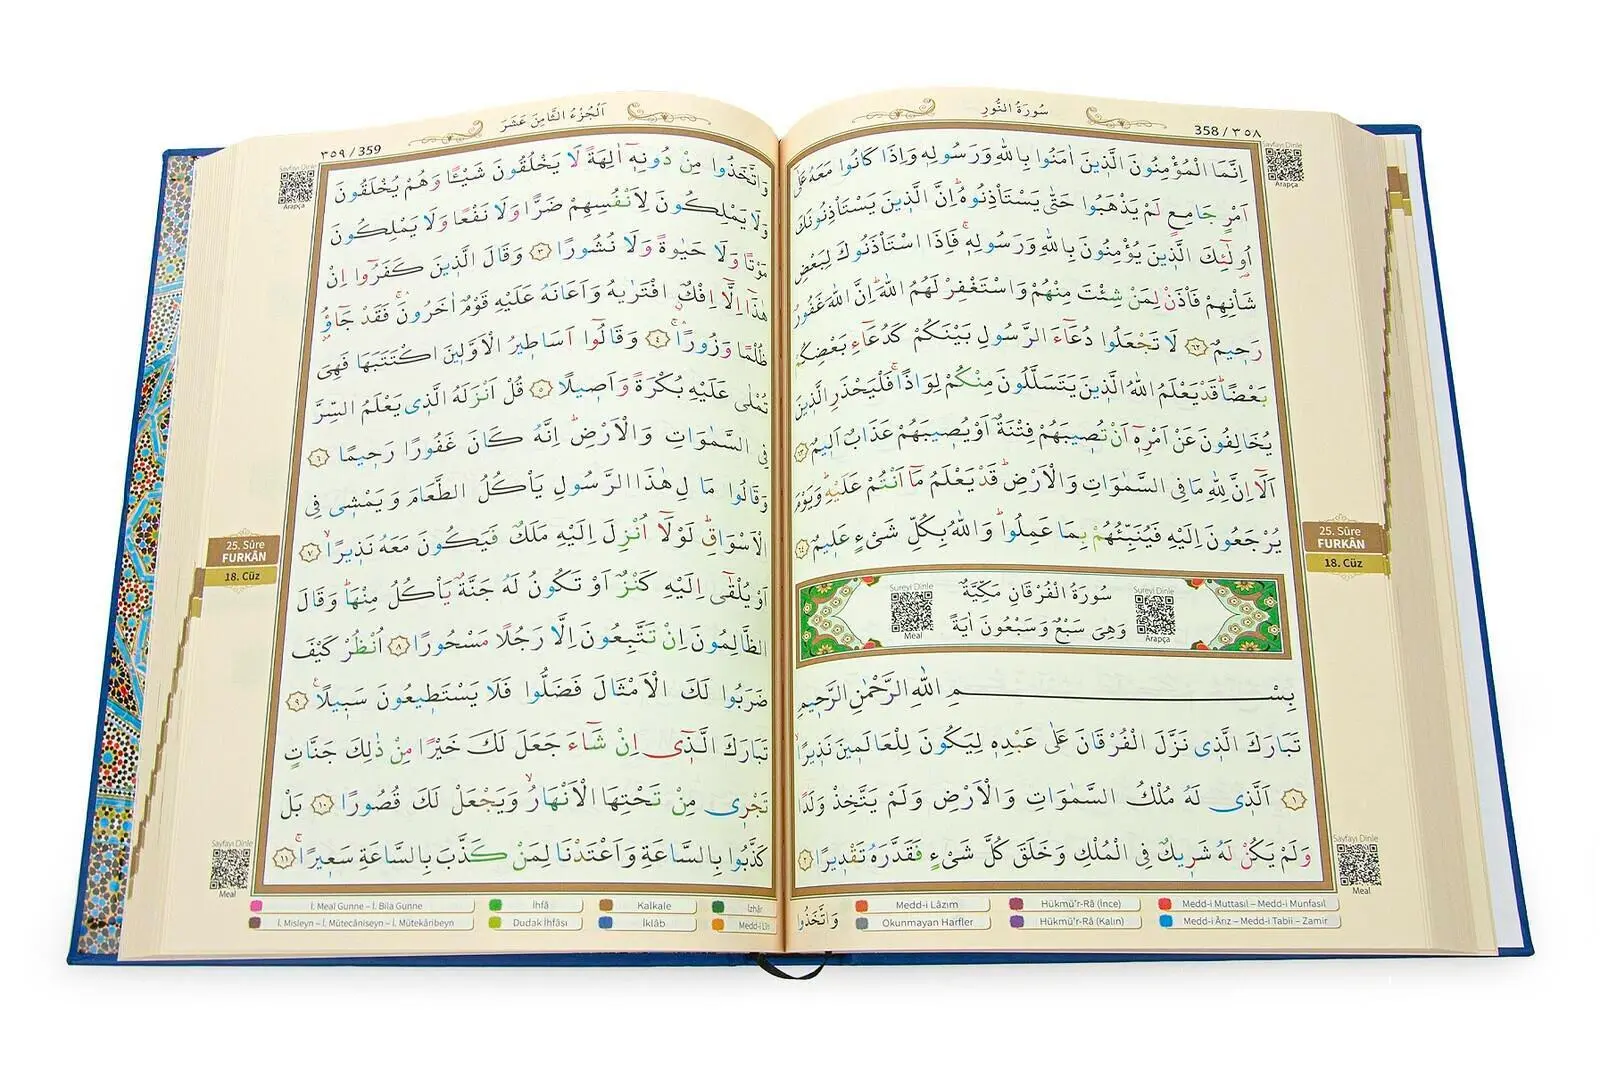 سُورَةُ النُّورِ
358 / ٣٥٨
Sayfayı Dinle
Arapça
اِنَّمَا الْمُؤْمِنُونَ الَّذ۪ينَ اٰمَنُوا بِاللّٰهِ وَرَسُولِه۪ وَاِذَا كَانُوا مَعَهُ عَلٰٓى
اَمْرٍ جَامِعٍ لَمْ يَذْهَبُوا حَتّٰى يَسْتَأْذِنُوهُۜ اِنَّ الَّذ۪ينَ يَسْتَأْذِنُونَكَ
اُو۬لٰٓئِكَ الَّذ۪ينَ يُؤْمِنُونَ بِاللّٰهِ وَرَسُولِه۪ۚ فَاِذَا اسْتَأْذَنُوكَ لِبَعْضِ
شَأْنِهِمْ فَأْذَنْ لِمَنْ شِئْتَ مِنْهُمْ وَاسْتَغْفِرْ لَهُمُ اللّٰهَۜ اِنَّ اللّٰهَ غَفُورٌ
رَح۪يمٌ ﴿٦٢﴾ لَا تَجْعَلُوا دُعَٓاءَ الرَّسُولِ بَيْنَكُمْ كَدُعَٓاءِ بَعْضِكُمْ
بَعْضًاۜ قَدْ يَعْلَمُ اللّٰهُ الَّذ۪ينَ يَتَسَلَّلُونَ مِنْكُمْ لِوَاذًاۚ فَلْيَحْذَرِ الَّذ۪ينَ
يُخَالِفُونَ عَنْ اَمْرِه۪ٓ اَنْ تُص۪يبَهُمْ فِتْنَةٌ اَوْ يُص۪يبَهُمْ عَذَابٌ اَل۪يمٌ ﴿٦٣﴾
اَلَٓا اِنَّ لِلّٰهِ مَا فِي السَّمٰوَاتِ وَالْاَرْضِۜ قَدْ يَعْلَمُ مَٓا اَنْتُمْ عَلَيْهِۜ وَيَوْمَ
يُرْجَعُونَ اِلَيْهِ فَيُنَبِّئُهُمْ بِمَا عَمِلُواۜ وَاللّٰهُ بِكُلِّ شَيْءٍ عَل۪يمٌ ﴿٦٤﴾
25. Sûre
FURKÂN
18. Cüz
Sureyi Dinle
Arapça
سُورَةُ الْفُرْقَانِ مَكِّيَّةٌ
وَهِيَ سَبْعٌ وَسَبْعُونَ اٰيَةً
Sureyi Dinle
Meal
بِسْمِ اللّٰهِ الرَّحْمٰنِ الرَّح۪يمِ
تَبَارَكَ الَّذ۪ي نَزَّلَ الْفُرْقَانَ عَلٰى عَبْدِه۪ لِيَكُونَ لِلْعَالَم۪ينَ نَذ۪يرًاۙ
﴿١﴾ اَلَّذ۪ي لَهُ مُلْكُ السَّمٰوَاتِ وَالْاَرْضِ وَلَمْ يَتَّخِذْ وَلَدًا
وَلَمْ يَكُنْ لَهُ شَر۪يكٌ فِي الْمُلْكِ وَخَلَقَ كُلَّ شَيْءٍ فَقَدَّرَهُ تَقْد۪يرًا ﴿٢﴾
Sayfayı Dinle
Meal
وَاتَّخَذُوا
Medd-i Lâzım
Hükmü'r-Râ (İnce)
Medd-i Muttasıl – Medd-i Munfasıl
Okunmayan Harfler
Hükmü'r-Râ (Kalın)
Medd-i Ârız – Medd-i Tabii – Zamir
اَلْجُزْءُ الثَّامِنَ عَشَرَ
٣٥٩ / 359
Sayfayı Dinle
Arapça
وَاتَّخَذُوا مِنْ دُونِه۪ٓ اٰلِهَةً لَا يَخْلُقُونَ شَيْـًٔا وَهُمْ يُخْلَقُونَ
وَلَا يَمْلِكُونَ لِاَنْفُسِهِمْ ضَرًّا وَلَا نَفْعًا وَلَا يَمْلِكُونَ
مَوْتًا وَلَا حَيٰوةً وَلَا نُشُورًا ﴿٣﴾ وَقَالَ الَّذ۪ينَ كَفَرُٓوا اِنْ
هٰذَٓا اِلَّٓا اِفْكٌۨ افْتَرٰيهُ وَاَعَانَهُ عَلَيْهِ قَوْمٌ اٰخَرُونَۚۛ فَقَدْ جَٓاؤُ۫
ظُلْمًا وَزُورًاۚۛ ﴿٤﴾ وَقَالُٓوا اَسَاط۪يرُ الْاَوَّل۪ينَ اكْتَتَبَهَا فَهِيَ
تُمْلٰى عَلَيْهِ بُكْرَةً وَاَص۪يلًا ﴿٥﴾ قُلْ اَنْزَلَهُ الَّذ۪ي يَعْلَمُ السِّرَّ
فِي السَّمٰوَاتِ وَالْاَرْضِۜ اِنَّهُ كَانَ غَفُورًا رَح۪يمًا ﴿٦﴾
وَقَالُوا مَا لِ هٰذَا الرَّسُولِ يَأْكُلُ الطَّعَامَ وَيَمْش۪ي فِي
الْاَسْوَاقِۜ لَوْلَٓا اُنْزِلَ اِلَيْهِ مَلَكٌ فَيَكُونَ مَعَهُ نَذ۪يرًاۙ ﴿٧﴾
اَوْ يُلْقٰٓى اِلَيْهِ كَنْزٌ اَوْ تَكُونُ لَهُ جَنَّةٌ يَأْكُلُ مِنْهَاۜ وَقَالَ
الظَّالِمُونَ اِنْ تَتَّبِعُونَ اِلَّا رَجُلًا مَسْحُورًا ﴿٨﴾ اُنْظُرْ كَيْفَ
ضَرَبُوا لَكَ الْاَمْثَالَ فَضَلُّوا فَلَا يَسْتَط۪يعُونَ سَب۪يلًا۟ ﴿٩﴾
تَبَارَكَ الَّذ۪ٓي اِنْ شَٓاءَ جَعَلَ لَكَ خَيْرًا مِنْ ذٰلِكَ جَنَّاتٍ
تَجْر۪ي مِنْ تَحْتِهَا الْاَنْهَارُۙ وَيَجْعَلْ لَكَ قُصُورًا ﴿١٠﴾ بَلْ
كَذَّبُوا بِالسَّاعَةِ وَاَعْتَدْنَا لِمَنْ كَذَّبَ بِالسَّاعَةِ سَع۪يرًاۚ ﴿١١﴾
25. Sûre
FURKÂN
18. Cüz
Sayfayı Dinle
Meal
İ. Meal Gunne – İ. Bila Gunne
İhfâ
Kalkale
İzhâr
İ. Misleyn – İ. Mütecâniseyn – İ. Mütekâribeyn
Dudak İhfâsı
İklâb
Medd-i Lîn